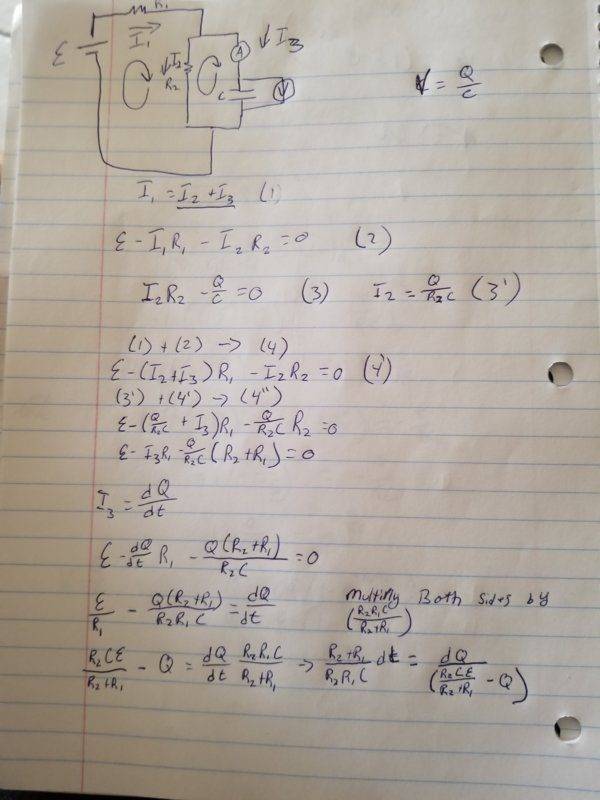 R₁
ε
I₁
I₂
R₂
A
C
V
I₃
V = Q/C
I₁ = I₂ + I₃ (1)
ε - I₁R₁ - I₂R₂ = 0 (2)
I₂R₂ - Q/C = 0 (3) I₂ = Q/R₂C (3')
(1) + (2) → (4)
ε - (I₂+I₃)R₁ - I₂R₂ = 0 (4')
(3') + (4') → (4'')
ε - (Q/R₂C + I₃)R₁ - Q/R₂C R₂ = 0
ε - I₃R₁ - Q/R₂C (R₂+R₁) = 0
I₃ = dQ/dt
ε - dQ/dt R₁ - Q(R₂+R₁)/R₂C = 0
ε/R₁ - Q(R₂+R₁)/R₂R₁C = dQ/dt Multiply Both sides by
(R₂R₁C/R₂+R₁)
R₂Cε/R₂+R₁ - Q = dQ/dt R₂R₁C/R₂+R₁ → R₂+R₁/R₂R₁C dt = dQ/(R₂Cε/R₂+R₁ - Q)